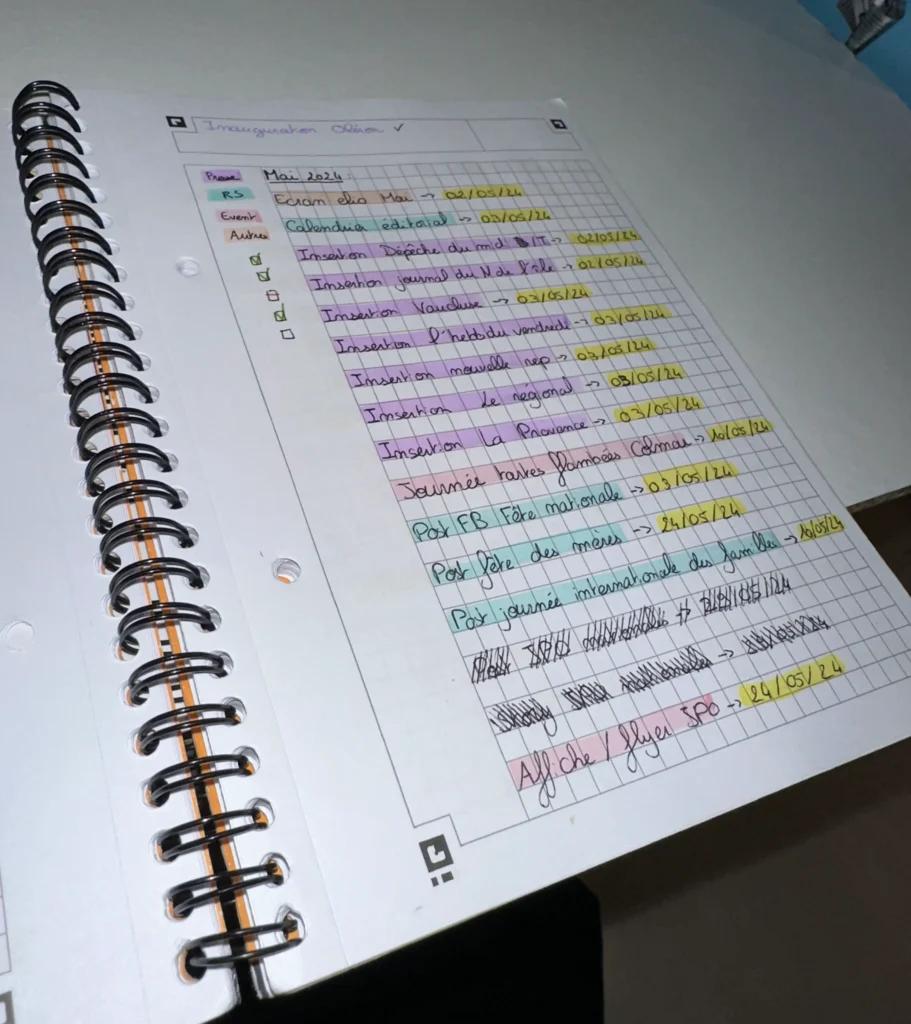 Inauguration Oléron ✓
Presse
RS
Event
Autre
Mai 2024:
Ecran elio Mai → 02/05/24
Calendrier éditorial → 03/05/24
Insertion Dépêche du midi IT → 02/05/24
Insertion journal du N de l'île → 02/05/24
Insertion Vaucluse → 03/05/24
Insertion l'hebdo du vendredi → 03/05/24
Insertion nouvelle rep → 03/05/24
Insertion Le régional → 03/05/24
Insertion La Provence → 03/05/24
Journée tartes flambées Colmar → 10/05/24
Post FB Fête nationale → 03/05/24
Post fête des mères → 24/05/24
Post journée internationale des familles → 10/05/24
Affiche / flyer JPO → 24/05/24